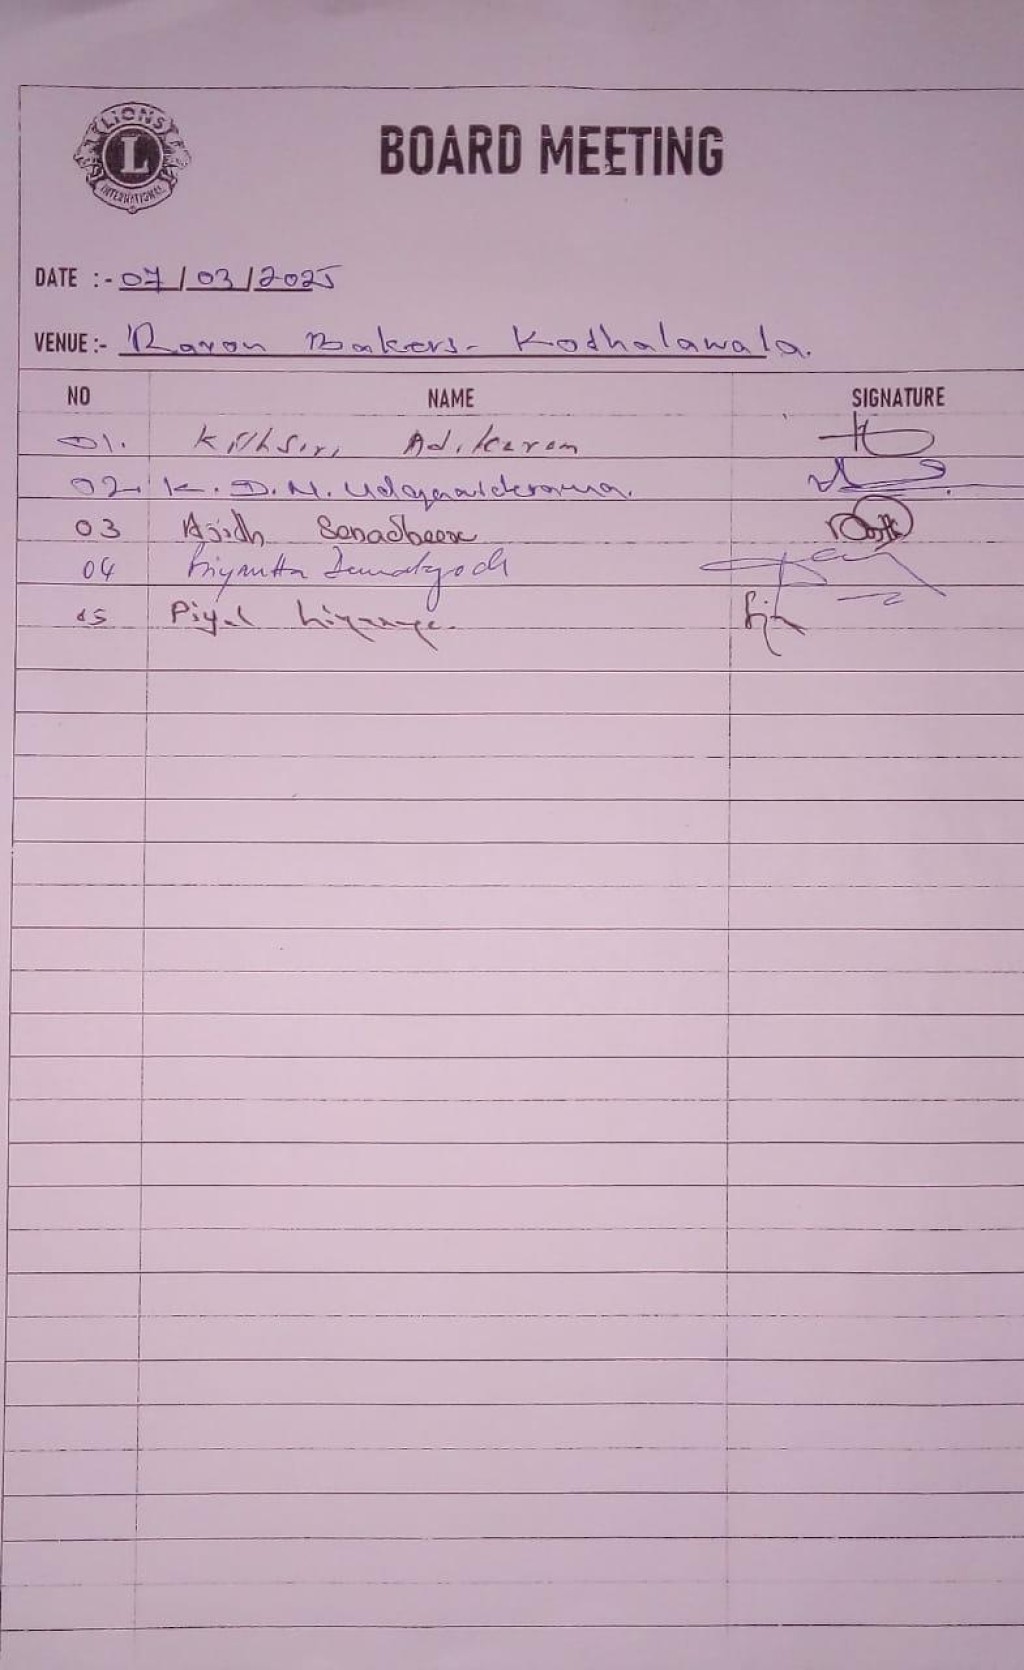 LIONS
L
INTERNATIONAL
BOARD MEETING
DATE :- 07/03/2025
VENUE :- Ravon Bakers - Kodhalawala.
NO NAME SIGNATURE
01. Kithsiri Adikaram
02. K. D. N. Udayawickrama.
03 Ajith Senadheera
04 Priyantha
05 Piyal Liyanage.